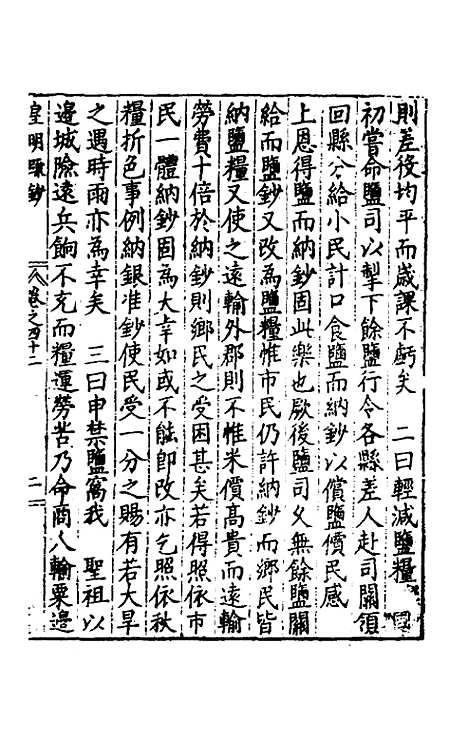 則差役均平而歲課不虧矣　二曰輕減鹽糧　國
初嘗命鹽司以掣下餘鹽行令各縣差人赴司關領
回縣分給小民計口食鹽而納鈔以償鹽價民感
上恩得鹽而納鈔固此樂也厥後鹽司又無餘鹽關
給而鹽鈔又改為鹽糧惟市民仍許納鈔而鄉民皆
納鹽糧又使之遠輸外郡則不惟米價高貴而遠輸
勞費十倍於納鈔則鄉民之受困甚矣若得照依市
民一體納鈔固為大幸如或不能即改亦乞照依秋
糧折色事例納銀准鈔使民受一分之賜有若大旱
之遇時雨亦為幸矣　三曰申禁鹽窩我　聖祖以
邊城險遠兵餉不充而糧運勞苦乃命商人輸粟邊
皇明疏鈔　卷之四十二　二